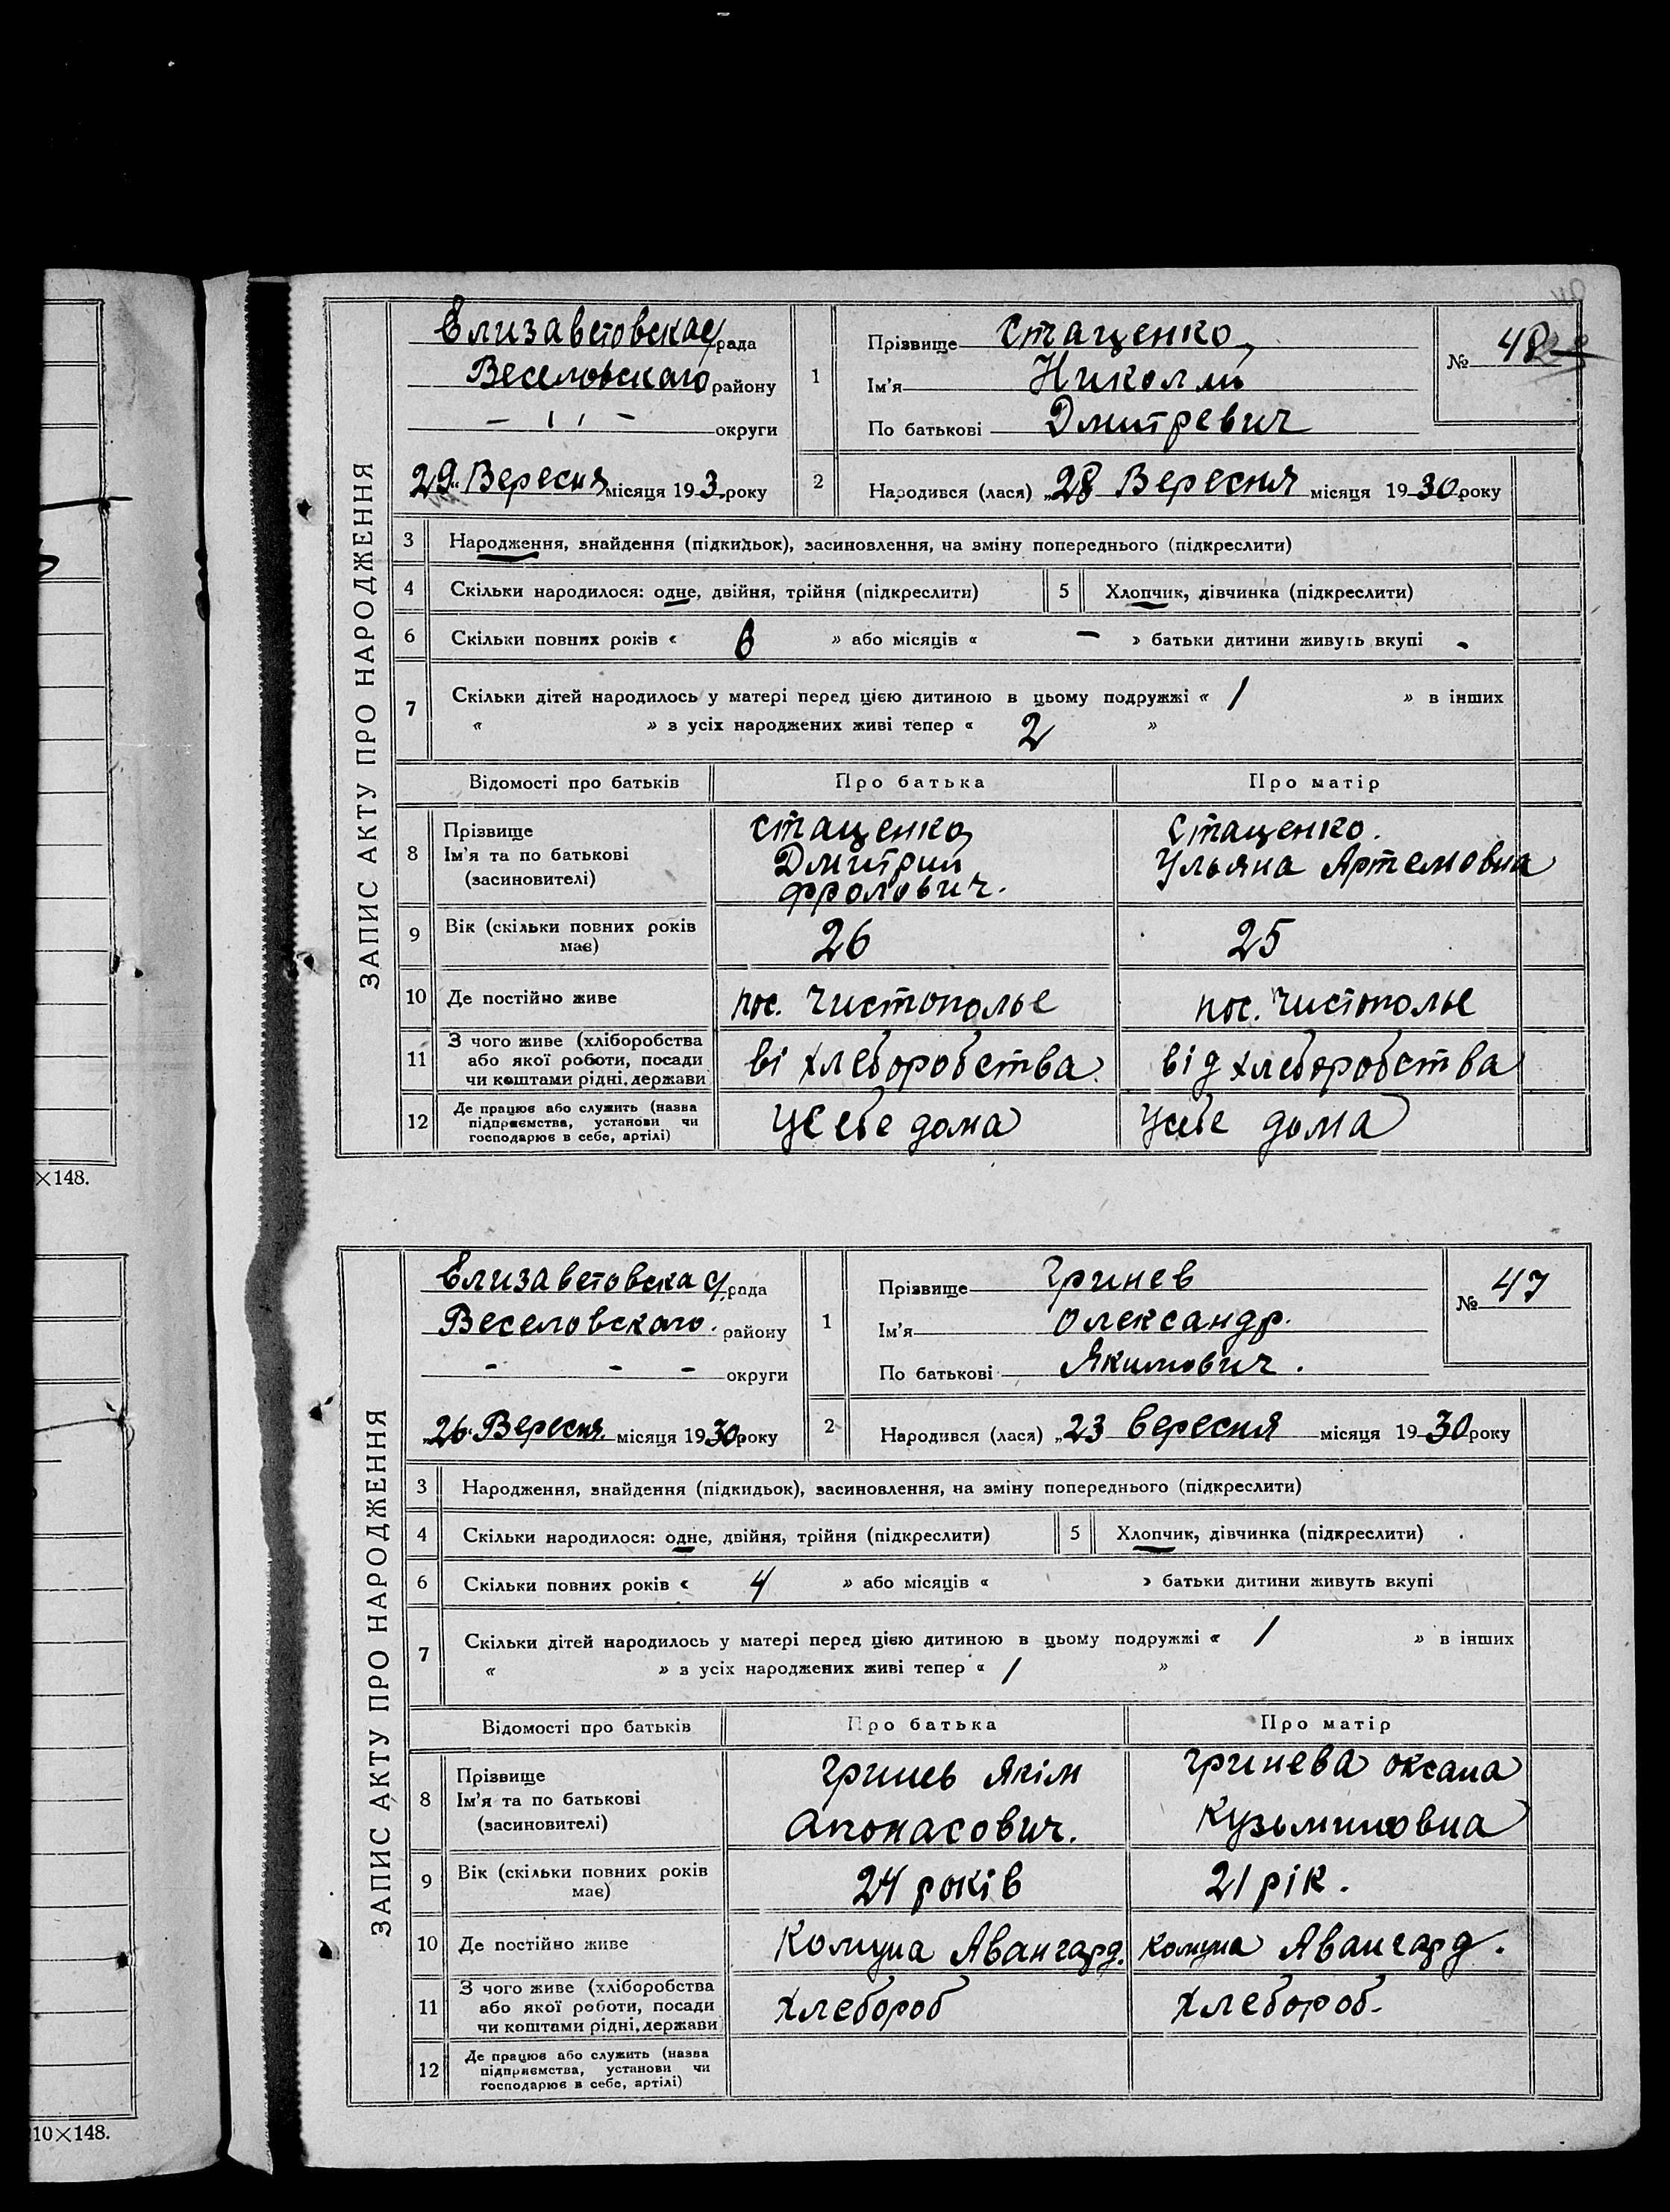 Елизаветовская рада
Веселовскаго району
— ı ı — округи
29 Вересня місяця 193 року
1
Прізвище Стаценко
Ім'я Николай
По батькові Дмитревич
№ 48
2
Народився (лася) „28 Вересня місяця 1930 року
ЗАПИС АКТУ ПРО НАРОДЖЕННЯ
3 Народження, знайдення (підкидьок), засиновлення, на зміну попереднього (підкреслити)
4 Скільки народилося: одне, двійня, трійня (підкреслити) 5 Хлопчик, дівчинка (підкреслити)
6 Скільки повних років « 6 » або місяців « — » батьки дитини живуть вкупі -
7 Скільки дітей народилось у матері перед цією дитиною в цьому подружжі « 1 » в інших
« » з усіх народжених живі тепер « 2 »
Відомості про батьків Про батька Про матір
8 Прізвище
Ім'я та по батькові
(засиновителі)
Стаценко
Дмитрий
Фролович.
Стаценко.
Ульяна Артемовна
9 Вік (скільки повних років
має)
26 25
10 Де постійно живе пос. Чистополье пос. Чистополье
11 З чого живе (хліборобства
або якої роботи, посади
чи коштами рідні, держави
ві хлеборобства від хлеборобства
12 Де працює або служить (назва
підприємства, установи чи
господарює в себе, артілі)
У себе дома У себе дома
×148.
Елизаветовская рада
Веселовскаго. району
- - - округи
„26 Вересня місяця 1930 року
1
Прізвище Гринев
Ім'я Олександр.
По батькові Якимович.
№ 47
2
Народився (лася) „23 вересня місяця 1930 року
ЗАПИС АКТУ ПРО НАРОДЖЕННЯ
3 Народження, знайдення (підкидьок), засиновлення, на зміну попереднього (підкреслити)
4 Скільки народилося: одне, двійня, трійня (підкреслити) 5 Хлопчик, дівчинка (підкреслити)
6 Скільки повних років « 4 » або місяців « » батьки дитини живуть вкупі
7 Скільки дітей народилось у матері перед цією дитиною в цьому подружжі « 1 » в інших
« » з усіх народжених живі тепер « 1 »
Відомості про батьків Про батька Про матір
8 Прізвище
Ім'я та по батькові
(засиновителі)
Гринев Якім
Апонасович.
Гринева Оксана
Кузьминовна
9 Вік (скільки повних років
має)
24 років 21 рік.
10 Де постійно живе Комуна Авангард. Комуна Авангард.
11 З чого живе (хліборобства
або якої роботи, посади
чи коштами рідні, держави
Хлебороб Хлебороб.
12 Де працює або служить (назва
підприємства, установи чи
господарює в себе, артілі)
10×148.